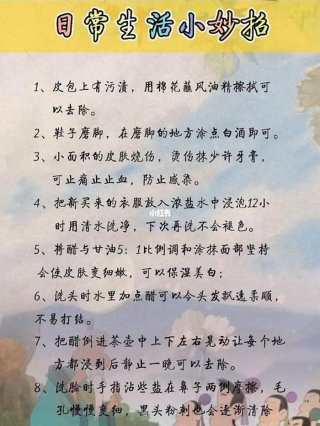 日常生活小妙招
1、皮包上有污渍，用棉花蘸风油精擦拭可
以去除。
2、鞋子磨脚，在磨脚的地方涂点白酒即可。
3、小面积的皮肤烧伤，烫伤抹少许牙膏，
可止痛止止血，防止感染。
4、把新买来的衣服放入浓盐水中浸泡12小
时用清水洗净，下次再洗不会褪色。
小红书
5、将醋与甘油5：1比例调和涂抹面部坚持
会使皮肤变细嫩，可以保湿美白；
6、洗头时水里加点醋可以令头发飘逸柔顺，
不易打结。
7、把醋倒进茶壶中上下左右晃动让每个地
方都浸到后静止一晚可以去除。
8、洗脸时手指沾些盐在鼻子两侧摩擦，毛
孔慢慢变细，黑头粉刺也会逐渐清除